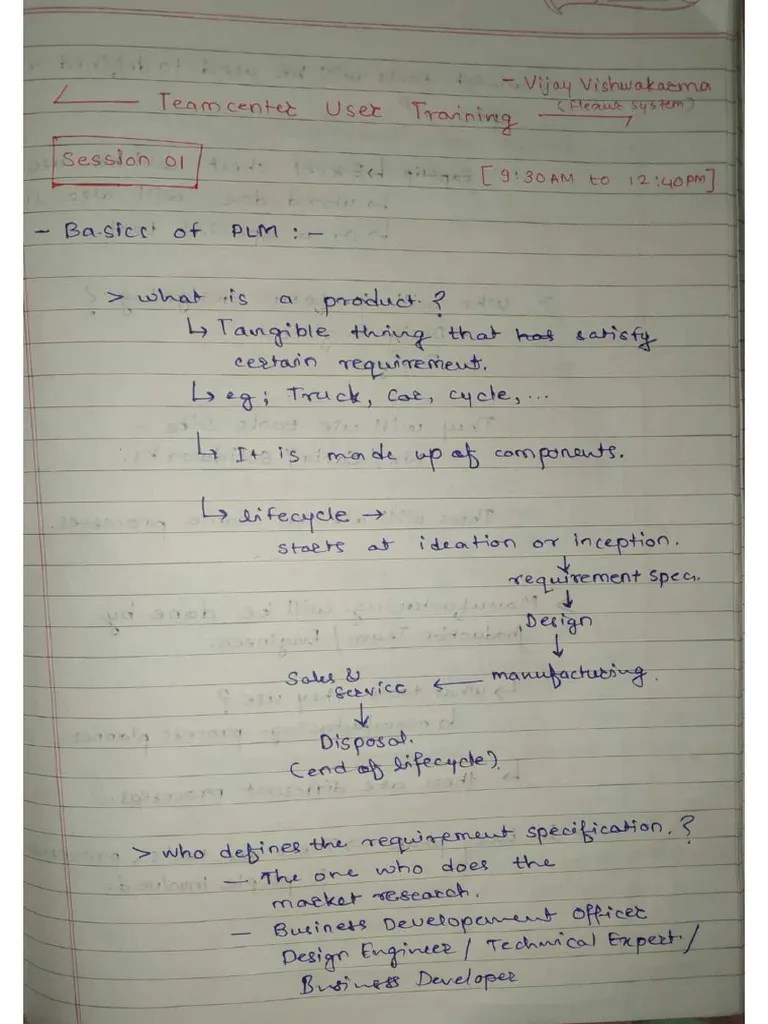 - Vijay Vishwakarma
Teamcenter User Training
System)
Session 01
[9:30AM to 12:40PM]
- Basics of PLM :-
> what is a product.?
↳ Tangible thring that has satisfy
certain requirement.
↳ eg; Truck, Car, cycle, ...
↳ It is made up of components.
↳ lifecycle →
starts at ideation or inception.
↓
requirement spec.
↓
Design
↓
Sales & ← manufacturing.
Service
↓
Disposal.
(end of lifecycle).
> who defines the requirement specification.?
- The one who does the
market research.
- Business Developement Officer
Design Engineer / Technical Expert /
Business Developer